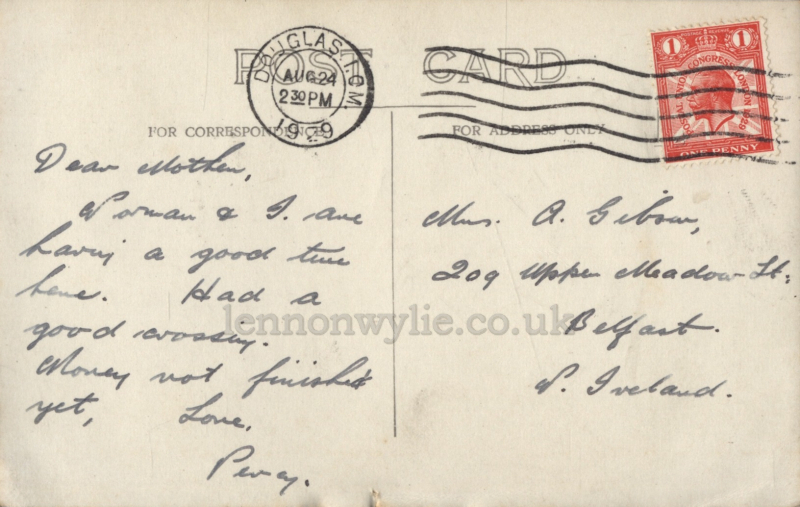 POST CARD
DOUGLAS. I.OM.
AUG 24
2 30 PM
1929
1 POSTAGE REVENUE 1
POSTAL UNION CONGRESS LONDON 1929
ONE PENNY
FOR CORRESPONDENCE
FOR ADDRESS ONLY
Dear Mother,
Norman & I. are
having a good time
here. Had a
good crossing.
Money not finished
yet, Love,
Percy.
Mrs. A. Gibson,
209 Upper Meadow St:
Belfast.
N. Ireland.
lennonwylie.co.uk